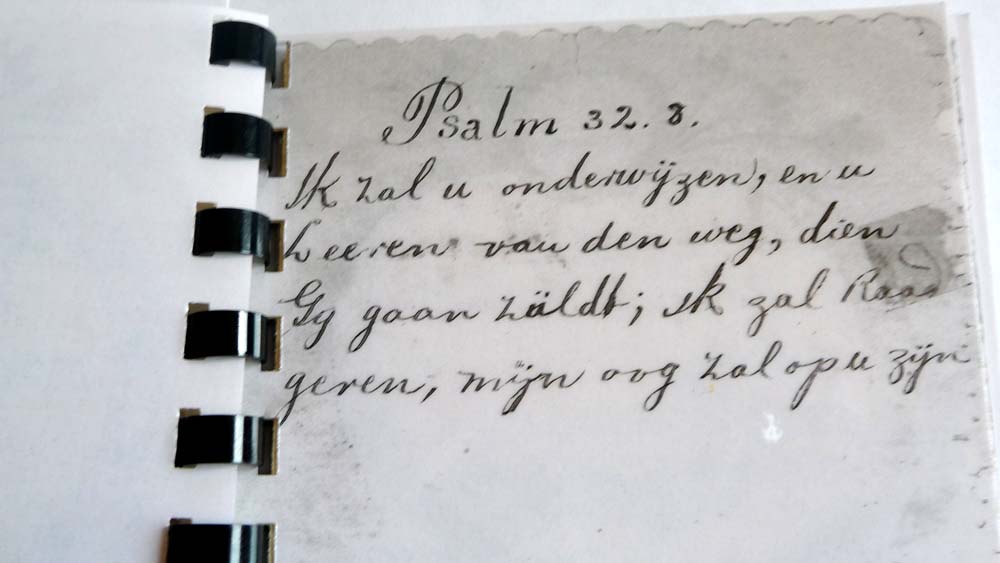 Psalm 32. 8.
Ik zal u onderwijzen, en u
Leeren van den weg, dien
Gy gaan zäldt; ik zal Raad
geren, mijn oog zal op u zijn